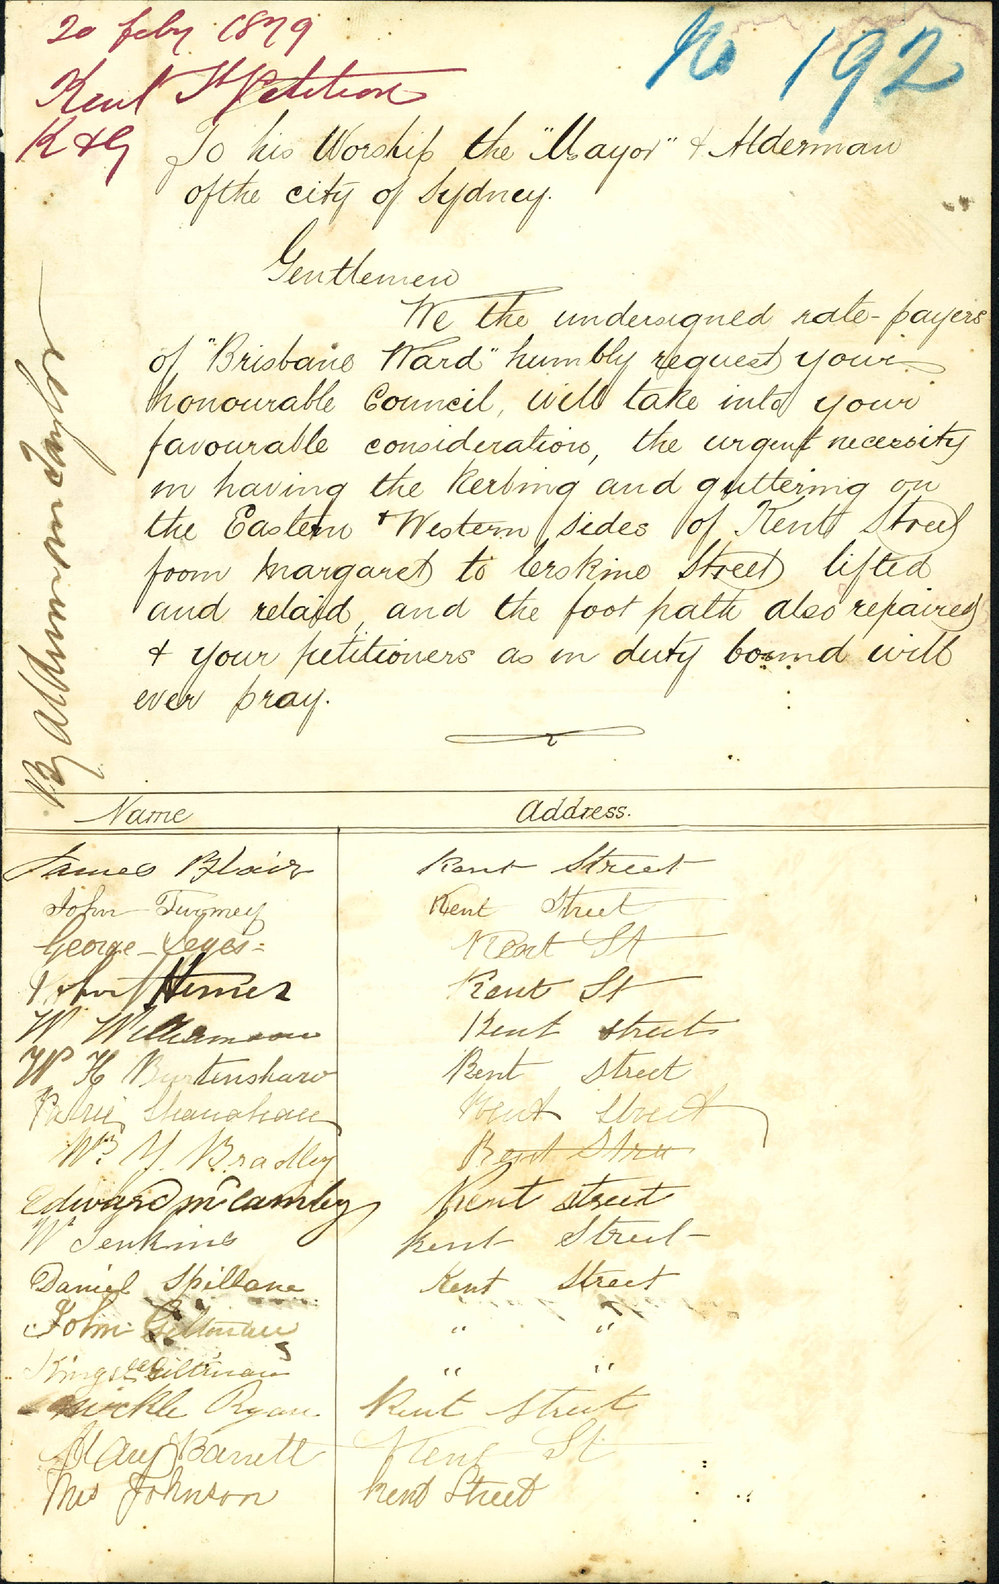 20 feby 1879
No 192
Kent St Petition
K & G
To his Worship the "Mayor" & Alderman
of the city of Sydney.
Gentlemen
We the undersigned rate-payers
of "Brisbane Ward" humbly request your
honourable Council, will take into your
favourable consideration, the urgent necessity
in having the kerbing and guttering on
the Eastern & Western sides of Kent Street
from Margaret to Erskine Street lifted
and relaid, and the foot path also repaired
& your petitioners as in duty bound will
ever pray.
By Alderman Taylor
Name Address.
James Blair Kent Street
John Kent Street
George Kent St
Kent St
W Williamson Kent street
W H Burtenshaw Kent street
Shanahan Kent Street
Wm Y. Bradley Kent Stree
Edward McCamley Kent street
W Jenkins Kent Street
Daniel Spillane Kent Street
John Giltinan " "
Giltinan " "
Mickle Ryan Kent Street
Mary Barrett Kent St
Thos Johnson Kent Street